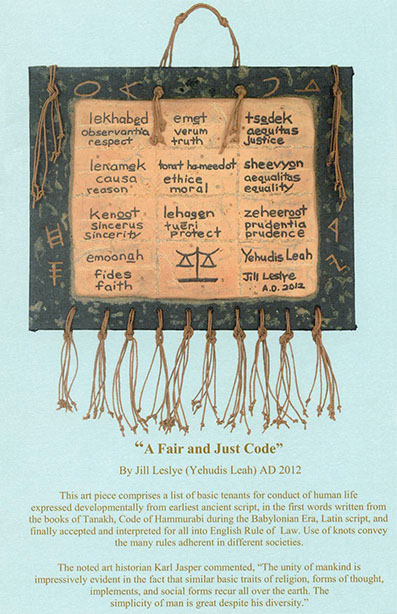 lekhabed
observantia
respect
emet
verum
truth
tsedek
aequitas
justice
lenamek
causa
reason
torat ha-meedot
ethice
moral
sheevyon
aequalitas
equality
kenoot
sincerus
sincerity
lehagen
tuēri
protect
zeheeroot
prudentia
prudence
emoonah
fides
faith
Yehudis Leah
Jill Leslye
A.D. 2012
“A Fair and Just Code”
By Jill Leslye (Yehudis Leah) AD 2012
This art piece comprises a list of basic tenants for conduct of human life
expressed developmentally from earliest ancient script, in the first words written from
the books of Tanakh, Code of Hammurabi during the Babylonian Era, Latin script, and
finally accepted and interpreted for all into English Rule of Law. Use of knots convey
the many rules adherent in different societies.
The noted art historian Karl Jasper commented, “The unity of mankind is
impressively evident in the fact that similar basic traits of religion, forms of thought,
implements, and social forms recur all over the earth. The
simplicity of man is great despite his diversity.”